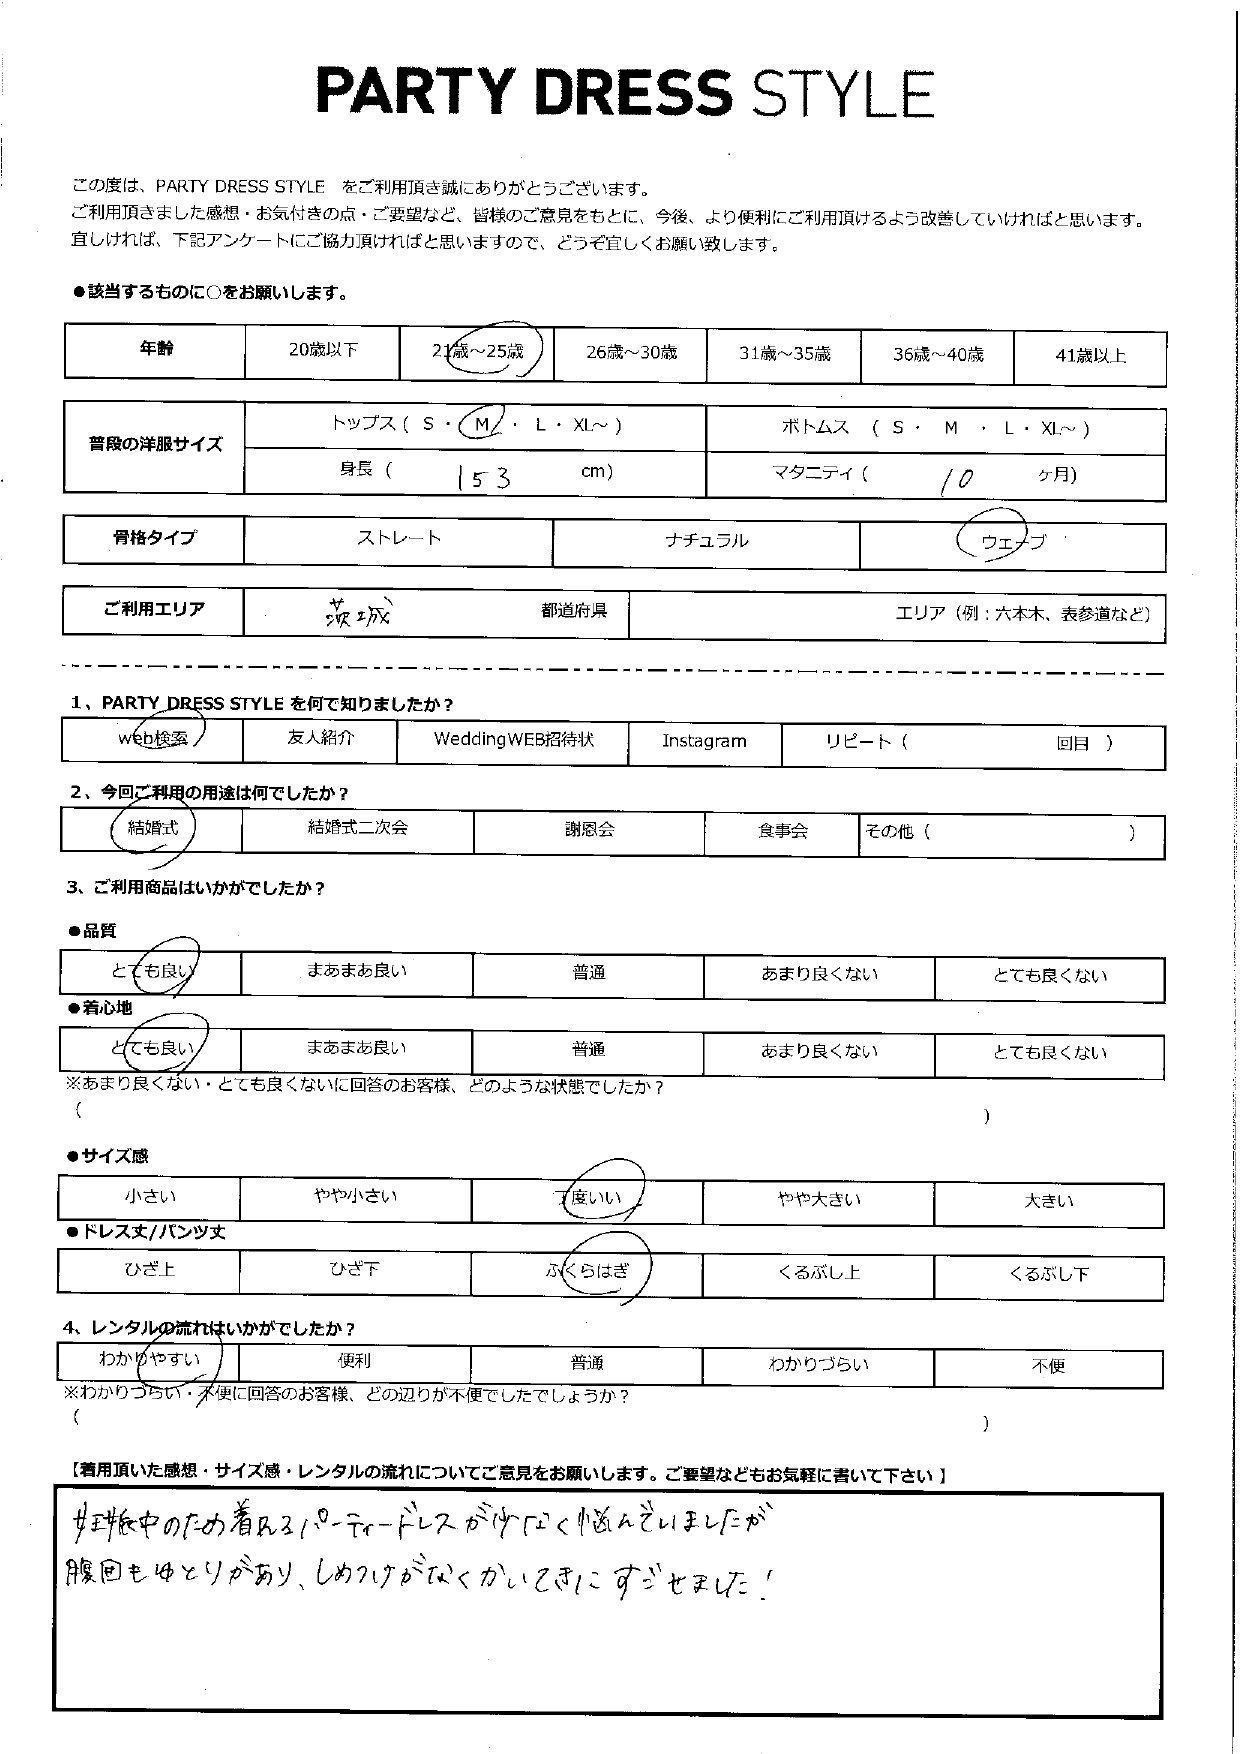 PARTY DRESS STYLE
この度は、PARTY DRESS STYLE をご利用頂き誠にありがとうございます。
ご利用頂きました感想・お気付きの点・ご要望など、皆様のご意見をもとに、今後、より便利にご利用頂けるよう改善していければと思います。
宜しければ、下記アンケートにご協力頂ければと思いますので、どうぞ宜しくお願い致します。
●該当するものに○をお願いします。
年齢 20歳以下 21歳～25歳 26歳～30歳 31歳～35歳 36歳～40歳 41歳以上
普段の洋服サイズ
トップス ( S ・ M ・ L ・ XL～ ) ボトムス ( S ・ M ・ L ・ XL～ )
身長 ( 153 cm) マタニティ ( 10 ヶ月)
骨格タイプ ストレート ナチュラル ウェーブ
ご利用エリア 茨城 都道府県 エリア（例：六本木、表参道など）
1、PARTY DRESS STYLE を何で知りましたか？
web検索 友人紹介 WeddingWEB招待状 Instagram リピート ( 回目 )
2、今回ご利用の用途は何でしたか？
結婚式 結婚式二次会 謝恩会 食事会 その他 ( )
3、ご利用商品はいかがでしたか？
●品質
とても良い まあまあ良い 普通 あまり良くない とても良くない
●着心地
とても良い まあまあ良い 普通 あまり良くない とても良くない
※あまり良くない・とても良くないに回答のお客様、どのような状態でしたか？
( )
●サイズ感
小さい やや小さい 丁度いい やや大きい 大きい
●ドレス丈/パンツ丈
ひざ上 ひざ下 ふくらはぎ くるぶし上 くるぶし下
4、レンタルの流れはいかがでしたか？
わかりやすい 便利 普通 わかりづらい 不便
※わかりづらい・不便に回答のお客様、どの辺りが不便でしたでしょうか？
( )
【着用頂いた感想・サイズ感・レンタルの流れについてご意見をお願いします。ご要望などもお気軽に書いて下さい】
妊娠中のため着れるパーティードレスが少なく悩んでいましたが
腹回もゆとりがあり、しめつけがなくかいてきにすごせました！